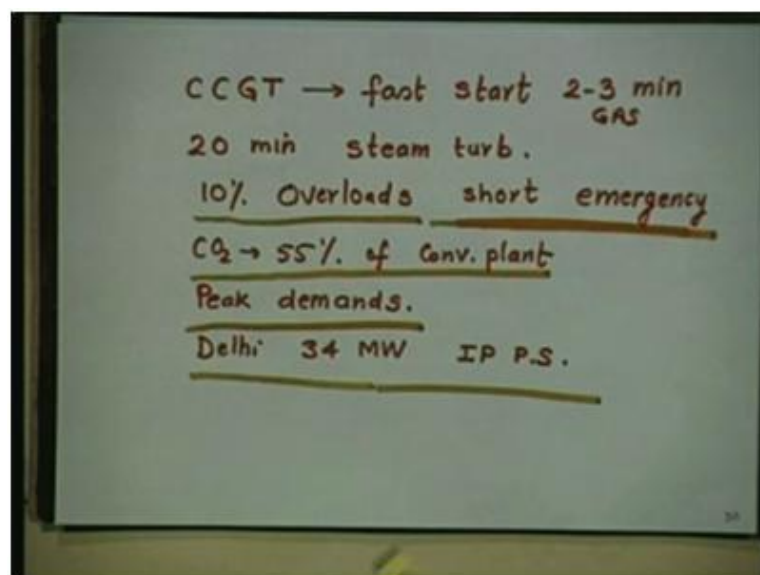 CCGT → fast start 2-3 min
GAS
20 min steam turb.
10% Overloads short emergency
CO2 → 55% of Conv. plant
Peak demands.
Delhi 34 MW IP P.S.